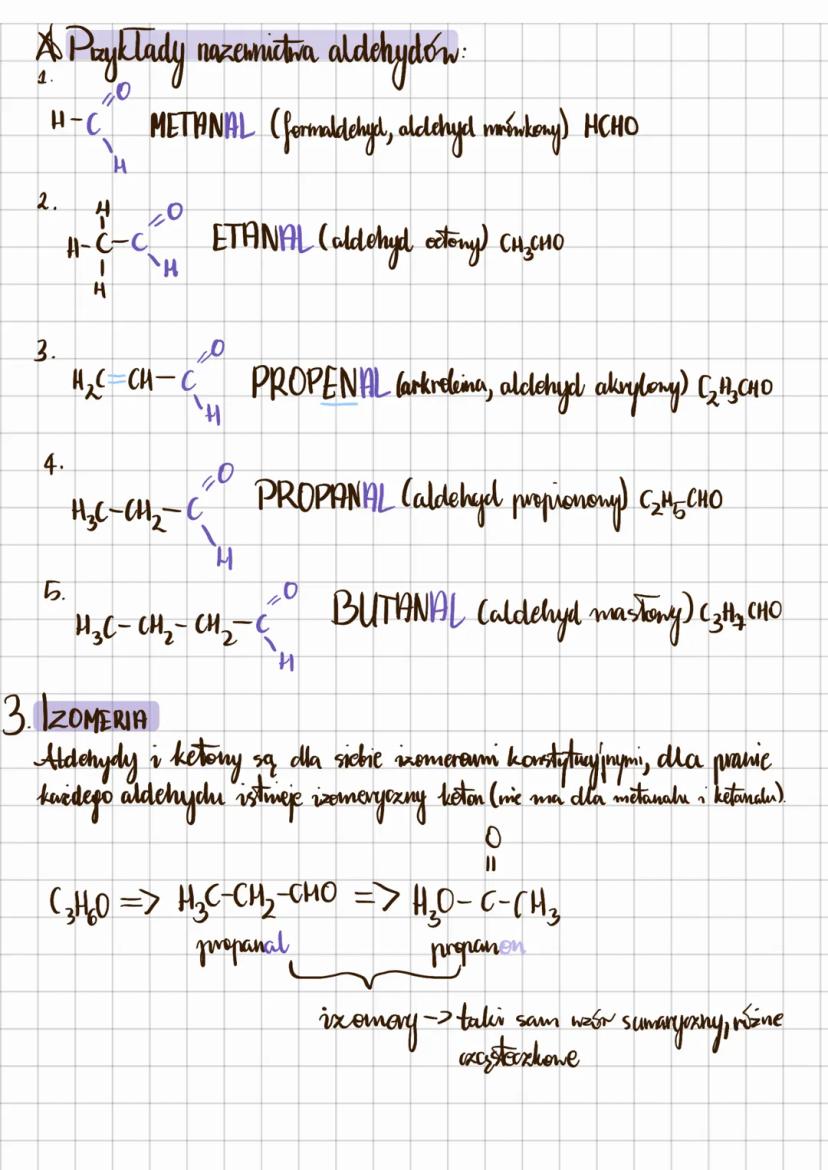 A Przykłady nazewnictwa aldehydów:
1.
O
H-C METANAL (formaldehyd, aldehyd mrówkowy) HCHO
H
2.
H O
H-C-C ETANAL (aldehyd octowy) CH₃CHO
H H
3.
O
H₂C=CH-C PROPENAL (arkroleina, aldehyd akrylowy) C₂H₃CHO
H
4.
O
H₃C-CH₂-C PROPANAL (aldehyd propionowy) C₂H₅CHO
H
5.
O
H₃C-CH₂-CH₂-C BUTANAL (aldehyd masłowy) C₃H₇CHO
H
3. IZOMERIA
Aldehydy i ketony są dla siebie izomerami konstytucyjnymi, dla prawie
każdego aldehydu istnieje izomeryczny keton (nie ma dla metanalu i ketanalu).
O
C₃H₆O => H₃C-CH₂-CHO => H₃O-C-CH₃
propanal propanon
izomery -> taki sam wzór sumaryczny, różne
cząsteczkowe